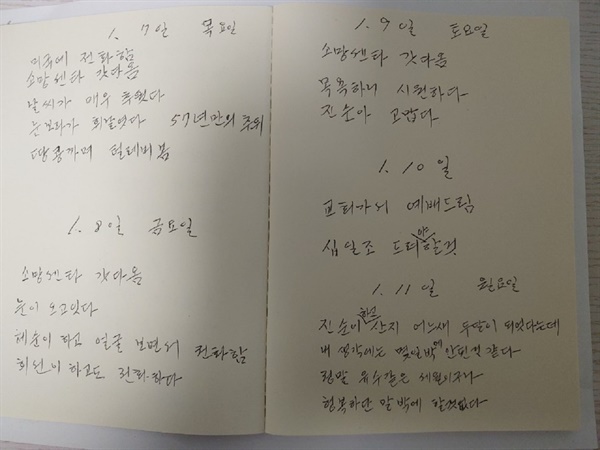 1. 7일 목요일
미국에 전화함
소망센타 갓다옴
날씨가 매우 추웟다
눈보라가 휘날엿다 57년만의 추위
땅콩까며 텔레비봄
1. 8일 금요일
소망센타 갓다옴
눈이 오고잇다
헤순이 하고 얼굴 보면서 전화함
희원이 하고도 전화하다
1. 9일 토요일
소망센타 갓다옴
목욕하니 시원하다
진순아 고맙다
1. 10일
교회가서 예배드림
십일조 드려야할것
1. 11일 월요일
진순이 한고 산지 어느새 두달이 되엇다는데
내 생각에는 몇일밖에 안된것 같다
정말 유수같은 세월이구나
행복하단 말 밖에 할것없다